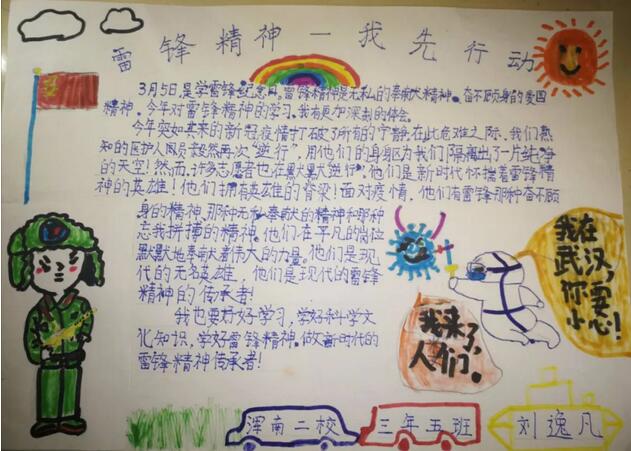 雷锋精神一我先行动
3月5日,是学雷锋纪念日,雷锋精神是无私的奉献精神。奋不顾身的爱国
精神。今年对雷锋精神的学习。我有更加深刻的体会。
今年突如其来的新冠疫情打破了所有的宁静,在此危难之际,我们熟
知的医护人员毅然再次"逆行",用他们的身躯为我们隔离出了一片纯净
的天空!然而,许多志愿者也在默默"逆行",他们是新时代怀揣着雷锋精
神的英雄!他们拥有英雄的脊梁!面对疫情,他们有雷锋那种奋不顾
身的精神,那种无私奉献的精神和那种
忘我拼搏的精神。他们在平凡的岗位
默默地奉献着伟大的力量。他们是现
代的无名英雄,他们是现代的雷锋
精神的传承者!
我也要好好学习,学好科学文
化知识,学好雷锋精神。做新时代的
雷锋精神传承者!
我在
武汉,
你要
小心!
我来了,
人们。
浑南二校
三年五班
刘逸凡